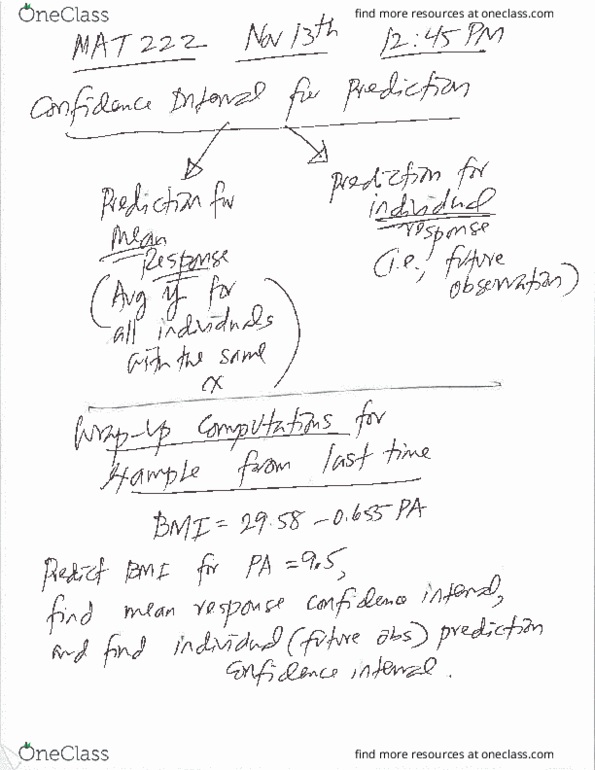 OneClass
find more resources at oneclass.com
MAT 222 Nov 13th 12:45 PM
Confidence Interval for Prediction
Prediction for
mean
Response
(Avg y for
all individuals
with the same
x)
prediction for
individual
response
(i.e., future
observation)
Wrap-Up Computations for
Example from last time
BMI = 29.58 - 0.655 PA
Predict BMI for PA = 9.5,
find mean response confidence interval,
and find individual (future obs) prediction
confidence interval.
OneClass
find more resources at oneclass.com